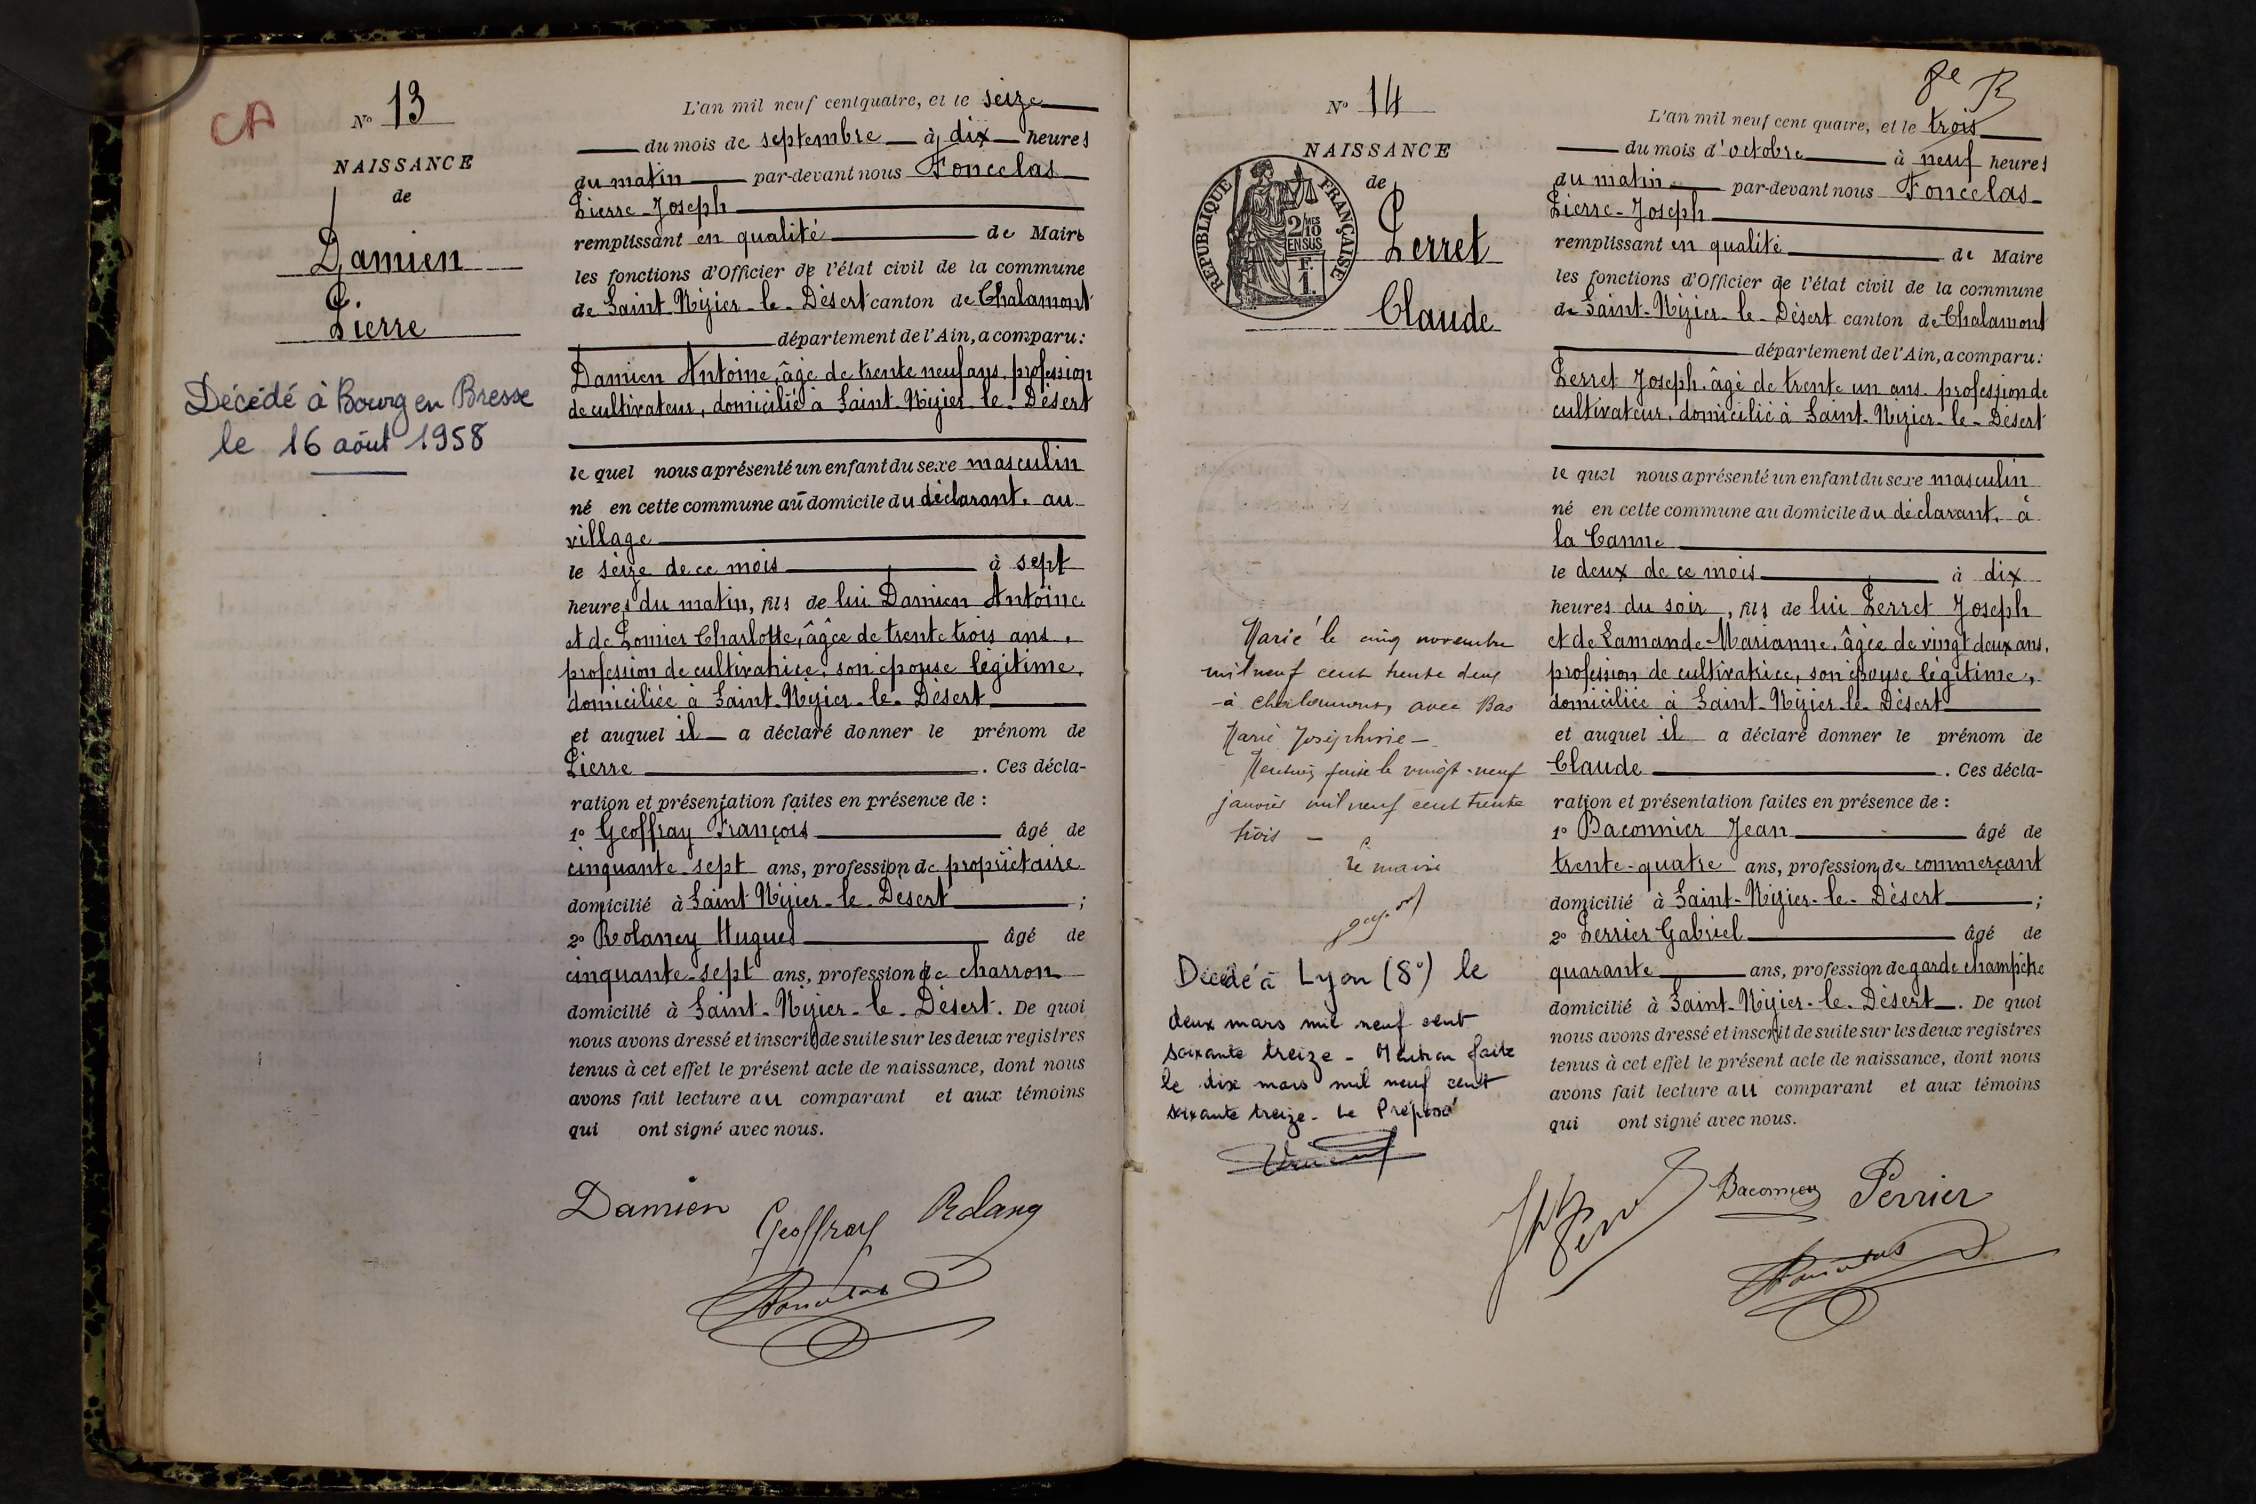 CA
N° 13
NAISSANCE
de
Damien
Pierre
Décédé à Bourg en Bresse
le 16 août 1958
L'an mil neuf cent quatre, et le seize
du mois de septembre à dix heures
du matin par-devant nous Foncelas
Pierre-Joseph
remplissant en qualité de Maire
les fonctions d'Officier de l'état civil de la commune
de Saint-Nizier-le-Désert canton de Chalamont
département de l'Ain, a comparu:
Damien Antoine, âgé de trente neuf ans, profession
de cultivateur, domicilié à Saint-Nizier-le-Désert
le quel nous a présenté un enfant du sexe masculin
né en cette commune au domicile du déclarant, au
village
le seize de ce mois à sept
heures du matin, fils de lui Damien Antoine
et de Pomier Charlotte, âgée de trente trois ans,
profession de cultivatrice, son épouse légitime,
domiciliée à Saint-Nizier-le-Désert
et auquel il a déclaré donner le prénom de
Pierre. Ces décla-
ration et présentation faites en présence de :
1° Geoffray François âgé de
cinquante-sept ans, profession de propriétaire
domicilié à Saint-Nizier-le-Désert ;
2° Rolaney Hugues âgé de
cinquante-sept ans, profession de charron
domicilié à Saint-Nizier-le-Désert. De quoi
nous avons dressé et inscrit de suite sur les deux registres
tenus à cet effet le présent acte de naissance, dont nous
avons fait lecture au comparant et aux témoins
qui ont signé avec nous.
Damien Geoffray
N° 14
NAISSANCE
de
Perret
Claude
REPUBLIQUE FRANÇAISE
2/10MES
EN SUS
F.
1.
Marié le cinq novembre
mil neuf cent trente deux
à Chalamont, avec Bas
Marie Joséphine
Mention faite le vingt-neuf
janvier mil neuf cent trente
trois -
Le maire
Décédé à Lyon (8°) le
deux mars mil neuf cent
soixante treize - Mention faite
le dix mars mil neuf cent
soixante treize - Le Préposé
8e B
L'an mil neuf cent quatre, et le trois
du mois d'octobre à neuf heures
du matin par-devant nous Foncelas
Pierre-Joseph
remplissant en qualité de Maire
les fonctions d'Officier de l'état civil de la commune
de Saint-Nizier-le-Désert canton de Chalamont
département de l'Ain, a comparu:
Perret Joseph, âgé de trente un ans, profession de
cultivateur, domicilié à Saint-Nizier-le-Désert
le quel nous a présenté un enfant du sexe masculin
né en cette commune au domicile du déclarant, à
la Canne
le deux de ce mois à dix
heures du soir, fils de lui Perret Joseph
et de Lamande Marianne, âgée de vingt deux ans,
profession de cultivatrice, son épouse légitime,
domiciliée à Saint-Nizier-le-Désert
et auquel il a déclaré donner le prénom de
Claude. Ces décla-
ration et présentation faites en présence de :
1° Baconnier Jean âgé de
trente-quatre ans, profession de commerçant
domicilié à Saint-Nizier-le-Désert ;
2° Perrier Gabriel âgé de
quarante ans, profession de garde champêtre
domicilié à Saint-Nizier-le-Désert. De quoi
nous avons dressé et inscrit de suite sur les deux registres
tenus à cet effet le présent acte de naissance, dont nous
avons fait lecture au comparant et aux témoins
qui ont signé avec nous.
Baconnier Perrier